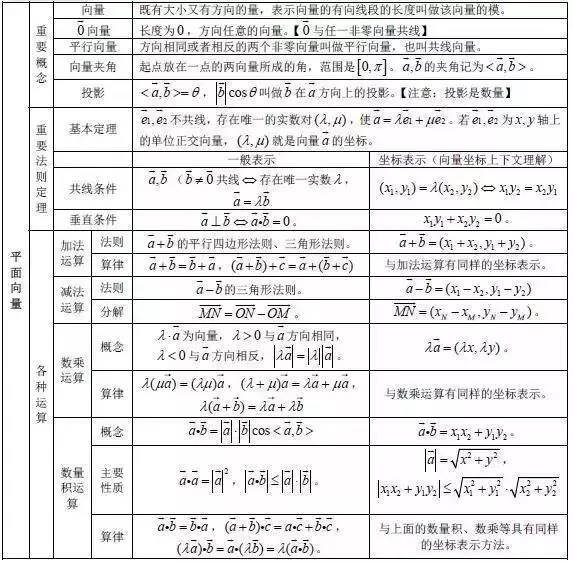 平面向量
重要概念
向量 既有大小又有方向的量,表示向量的有向线段的长度叫做该向量的模。
$\vec{0}$向量 长度为0,方向任意的向量。【$\vec{0}$与任一非零向量共线】
平行向量 方向相同或者相反的两个非零向量叫做平行向量,也叫共线向量。
向量夹角 起点放在一点的两向量所成的角,范围是$[0,\pi]$。$\vec{a},\vec{b}$的夹角记为$<\vec{a},\vec{b}>$。
投影 $<\vec{a},\vec{b}>=\theta$,$|\vec{b}|\cos\theta$叫做$\vec{b}$在$\vec{a}$方向上的投影。【注意:投影是数量】
重要法则定理
基本定理 $\vec{e}_1,\vec{e}_2$不共线,存在唯一的实数对$(\lambda,\mu)$,使$\vec{a}=\lambda\vec{e}_1+\mu\vec{e}_2$。若$\vec{e}_1,\vec{e}_2$为$x,y$轴上
的单位正交向量,$(\lambda,\mu)$就是向量$\vec{a}$的坐标。
一般表示 坐标表示(向量坐标上下文理解)
共线条件 $\vec{a},\vec{b}$($\vec{b}\neq\vec{0}$共线$\Leftrightarrow$存在唯一实数$\lambda$,
$\vec{a}=\lambda\vec{b}$
$(x_1,y_1)=\lambda(x_2,y_2)\Leftrightarrow x_1y_2=x_2y_1$
垂直条件 $\vec{a}\perp\vec{b}\Leftrightarrow\vec{a}\bullet\vec{b}=0$。 $x_1y_1+x_2y_2=0$。
各种运算
加法运算
法则 $\vec{a}+\vec{b}$的平行四边形法则、三角形法则。 $\vec{a}+\vec{b}=(x_1+x_2,y_1+y_2)$。
算律 $\vec{a}+\vec{b}=\vec{b}+\vec{a}$,$(\vec{a}+\vec{b})+\vec{c}=\vec{a}+(\vec{b}+\vec{c})$ 与加法运算有同样的坐标表示。
减法运算
法则 $\vec{a}-\vec{b}$的三角形法则。 $\vec{a}-\vec{b}=(x_1-x_2,y_1-y_2)$
分解 $\overrightarrow{MN}=\overrightarrow{ON}-\overrightarrow{OM}$。 $\overrightarrow{MN}=(x_N-x_M,y_N-y_M)$。
数乘运算
概念 $\lambda\cdot\vec{a}$为向量,$\lambda>0$与$\vec{a}$方向相同,
$\lambda<0$与$\vec{a}$方向相反,$|\lambda\vec{a}|=|\lambda||\vec{a}|$。
$\lambda\vec{a}=(\lambda x,\lambda y)$。
算律 $\lambda(\mu\vec{a})=(\lambda\mu)\vec{a}$,$(\lambda+\mu)\vec{a}=\lambda\vec{a}+\mu\vec{a}$,
$\lambda(\vec{a}+\vec{b})=\lambda\vec{a}+\lambda\vec{b}$
与数乘运算有同样的坐标表示。
数量积运算
概念 $\vec{a}\bullet\vec{b}=|\vec{a}|\cdot|\vec{b}|\cos<\vec{a},\vec{b}>$ $\vec{a}\bullet\vec{b}=x_1x_2+y_1y_2$。
主要性质 $\vec{a}\bullet\vec{a}=|\vec{a}|^2$,$|\vec{a}\bullet\vec{b}|\leq|\vec{a}|\cdot|\vec{b}|$。
$|\vec{a}|=\sqrt{x^2+y^2}$,
$|x_1x_2+y_1y_2|\leq\sqrt{x_1^2+y_1^2}\cdot\sqrt{x_2^2+y_2^2}$
算律 $\vec{a}\bullet\vec{b}=\vec{b}\bullet\vec{a}$,$(\vec{a}+\vec{b})\bullet\vec{c}=\vec{a}\bullet\vec{c}+\vec{b}\bullet\vec{c}$,
$(\lambda\vec{a})\bullet\vec{b}=\vec{a}\bullet(\lambda\vec{b})=\lambda(\vec{a}\bullet\vec{b})$。
与上面的数量积、数乘等具有同样
的坐标表示方法。